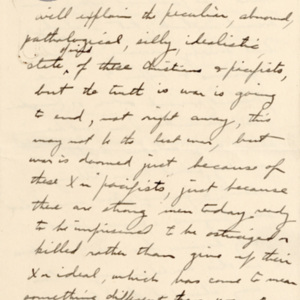 will explain the peculiar, abnormal,
pathological, silly, idealistic
state of mind of these Christians & pacifists,
but the truth is war is going
to end, not right away, this
may not be the last war, but
war is doomed just because of
these Xn pacifists, just because
there are strong men today ready
to be imprisoned to be ostracized or
killed rather than give up their
Xn ideal, which has come to mean
something different than